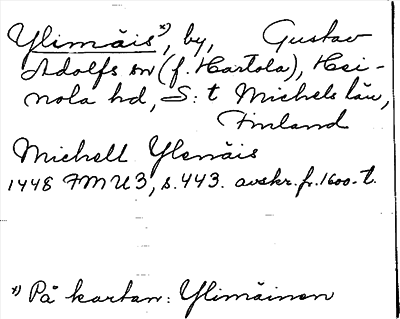 Ylimäis*), by, Gustav
Adolfs sn (f. Hartola), Hei-
nola hd, S:t Michels län,
Finland
Michell Ylemäis
1448 FMU3, s. 443. avskr. fr. 1600-t.
*) På kartan: Ylimäinen